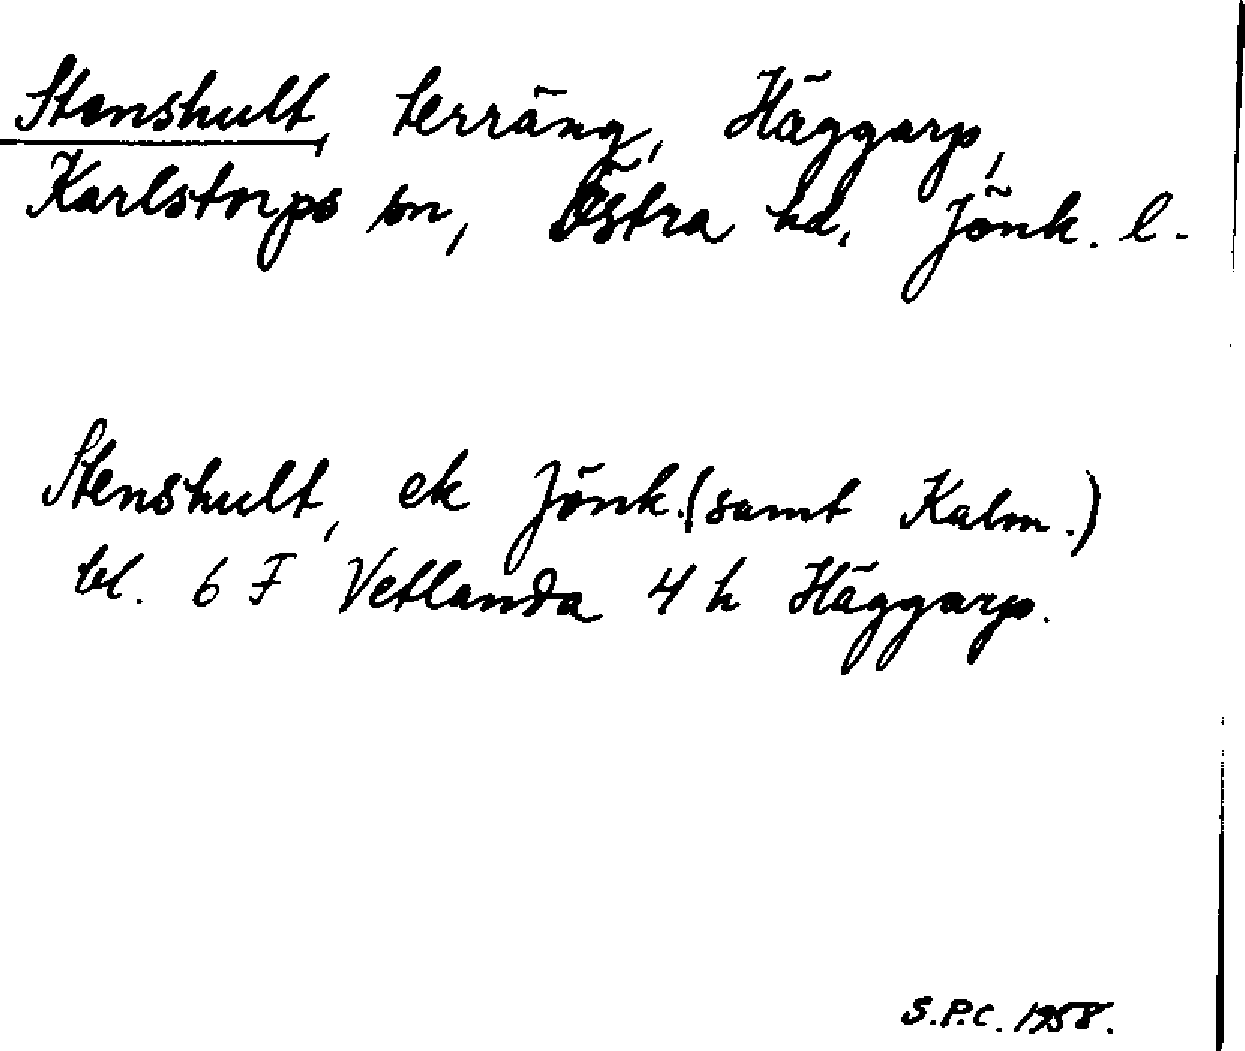 Stenshult, terräng, Häggarp,
Karlstorps sn, Östra hd, Jönk. l.
Stenshult, ek Jönk. (samt Kalm.)
bl. 6 F Vetlanda 4 h Häggarp.
S.P.C. 1958.